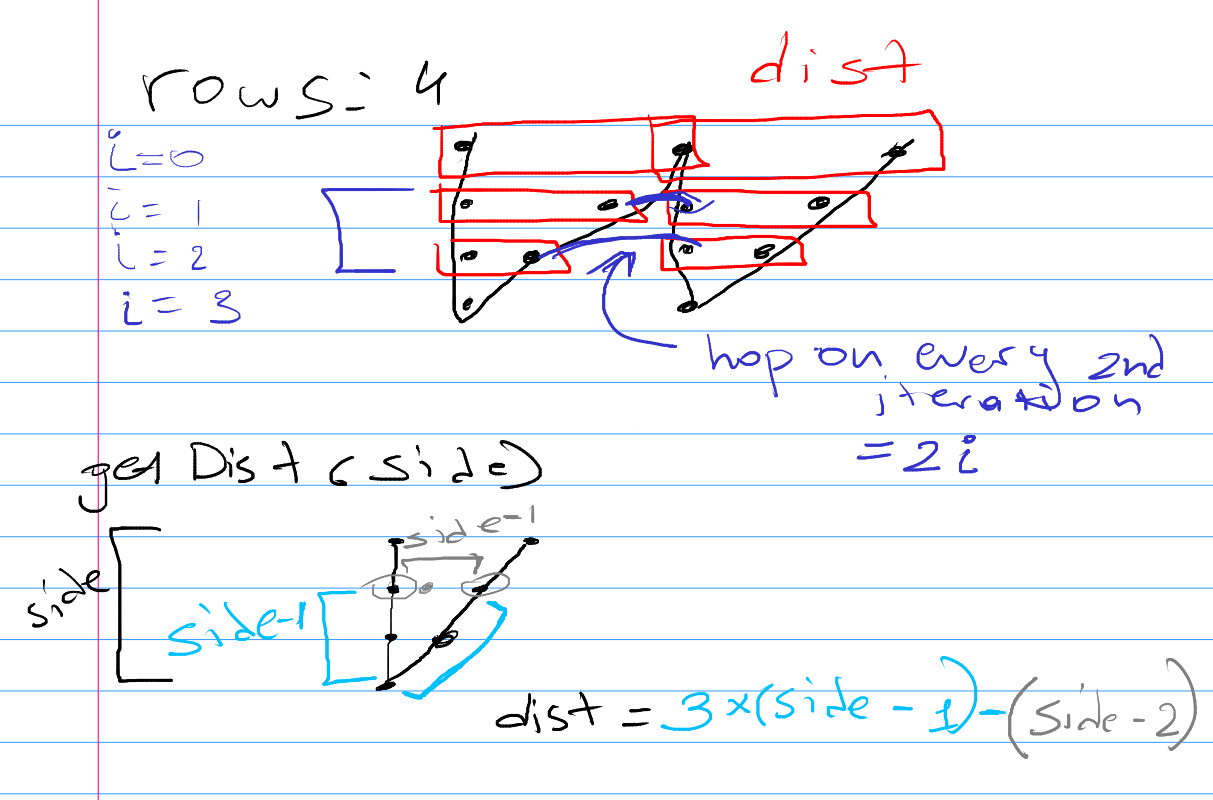 rows = 4
dist
i = 0
i = 1
i = 2
i = 3
hop on every 2nd
iteration
= 2i
get Dist (side)
side
side-1
side-1
dist = 3 × (side - 1) - (side - 2)